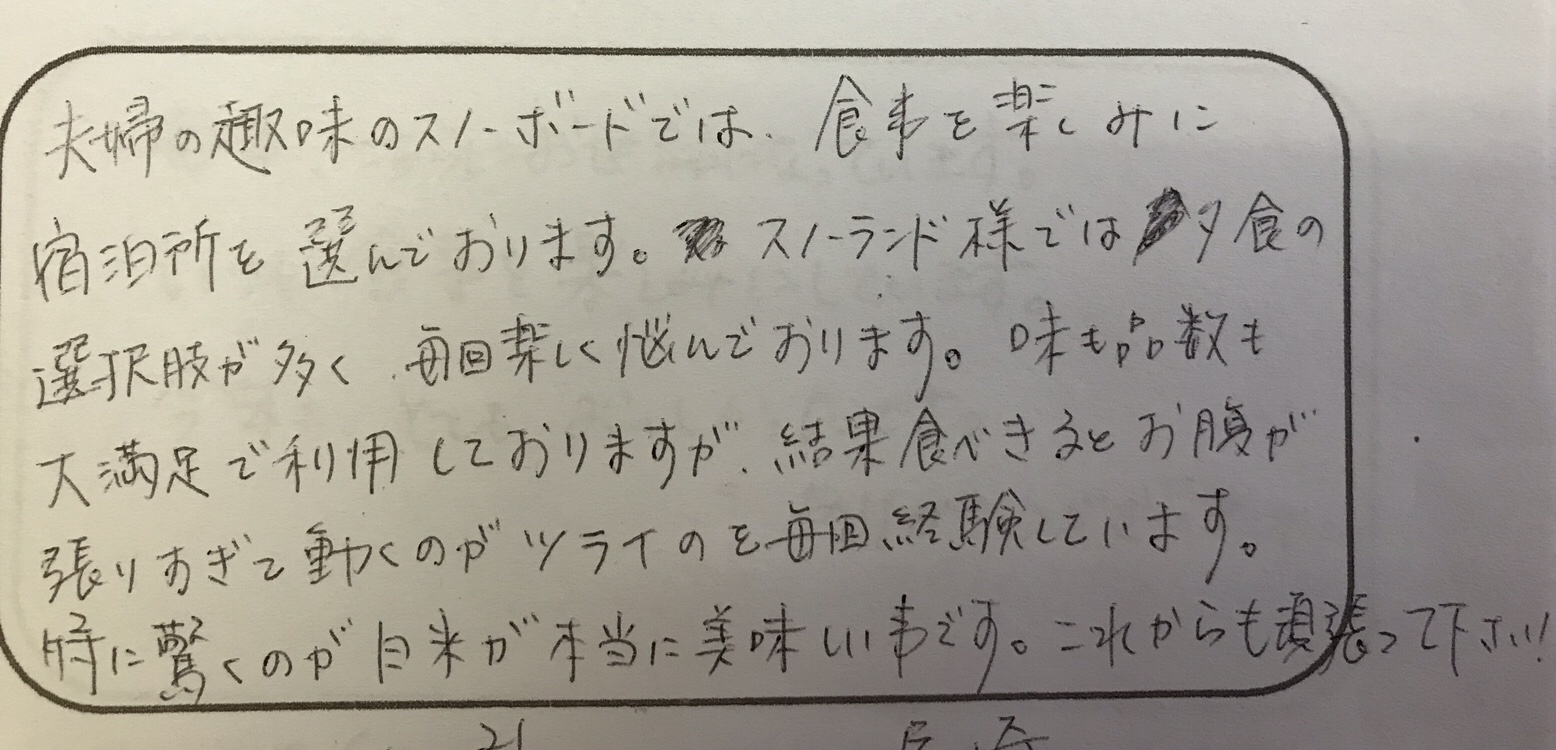 夫婦の趣味のスノーボードでは、食事を楽しみに
宿泊所を選んでおります。スノーランド様では夕食の
選択肢が多く、毎回楽しく悩んでおります。味も品数も
大満足で利用しておりますが、結果食べきるとお腹が
張りすぎて動くのがツライのを毎回経験しています。
特に驚くのが白米が本当に美味しい事です。これからも頑張って下さい!